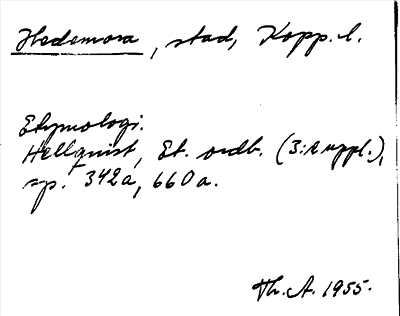 Hedemora, stad, Kopp. l.
Etymologi.
Hellquist, Et. ordb. (3: e uppl.),
sp. 342a, 660a.
Th. A. 1955.